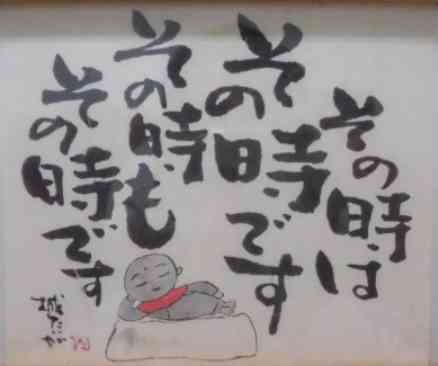 その時は
その時です
その時も
その時です